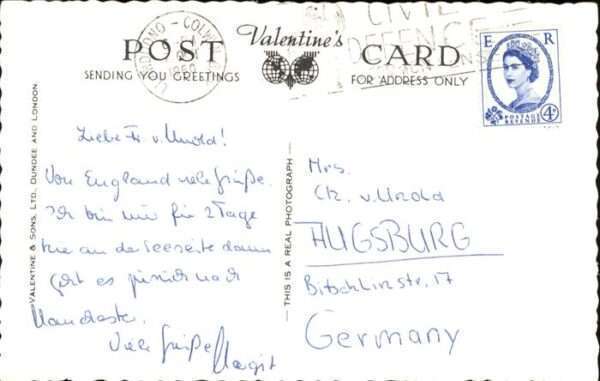 LLANDUDNO - COLWYN
1960
CIVIL
DEFENCE
POST Valentine's CARD
SENDING YOU GREETINGS FOR ADDRESS ONLY
E R
4D
POSTAGE
REVENUE
VALENTINE & SONS, LTD. DUNDEE AND LONDON
Liebe Fr. v. Unold!
Von England viele Grüße.
Ich bin nur für 2 Tage
hier an der Seeseite dann
geht es zurück nach
Manchester.
Viele Grüße Margit
THIS IS A REAL PHOTOGRAPH
Mrs.
Ch. v. Unold
AUGSBURG
Bitschlinstr. 17
Germany